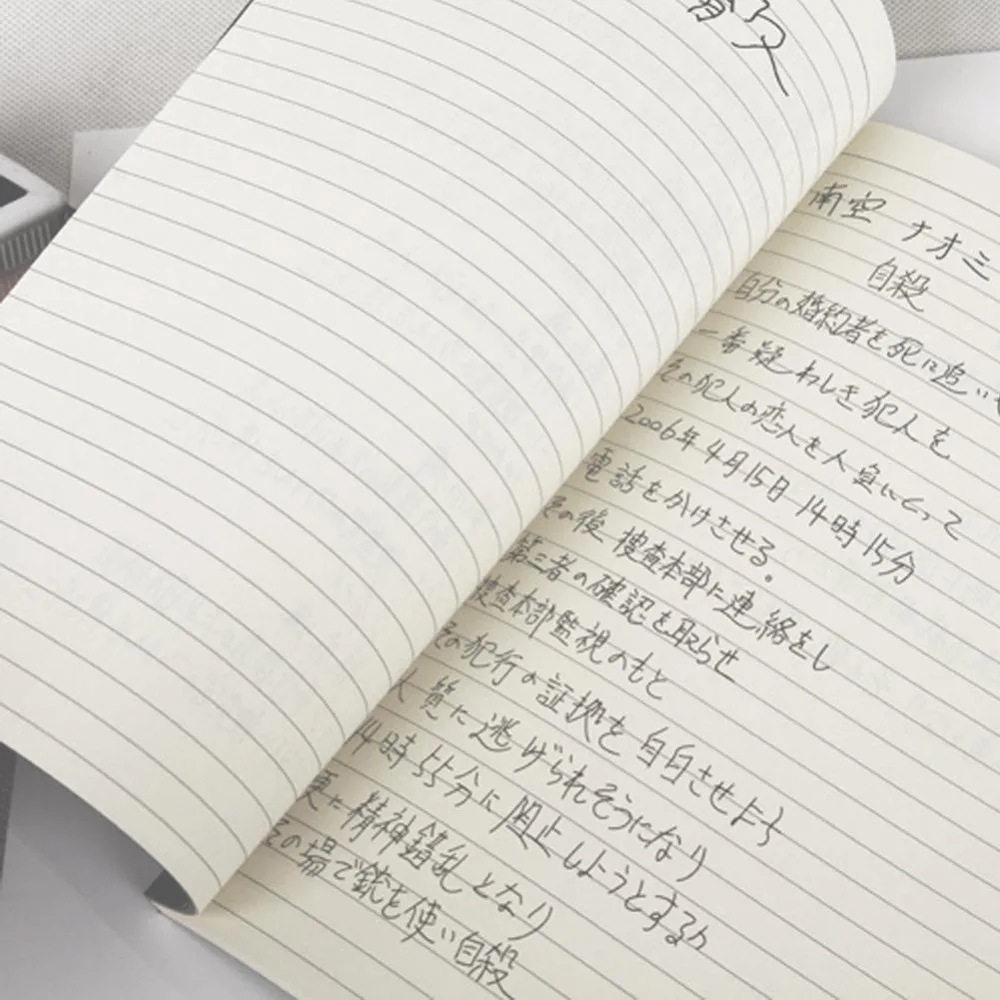 南空 ナオミ
自殺
自分の婚約者を死に追い
一番疑わしき犯人を
その犯人の恋人を人質にとって
2006年4月15日 14時15分
電話をかけさせる。
その後 捜査本部に連絡をし
第三者の確認を取らせ
捜査本部監視のもと
その犯行の証拠を自白させよう
人質に逃げられそうになり
14時55分に阻止しようとするが
更に精神錯乱となり
その場で銃を使い自殺